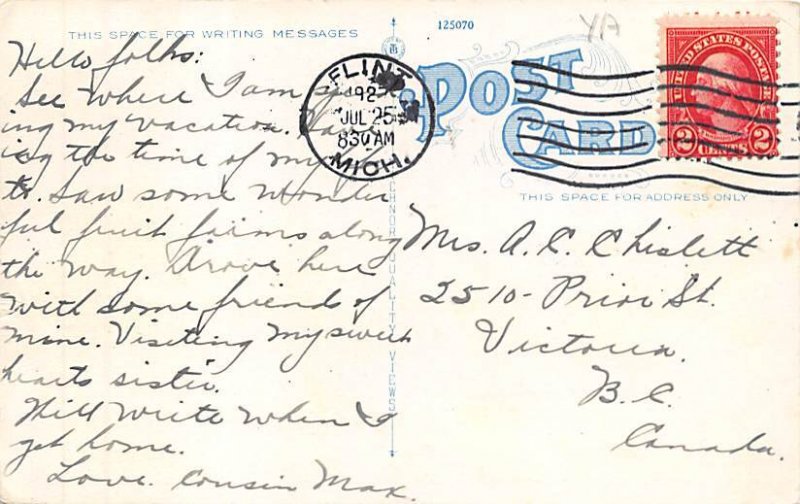 THIS SPACE FOR WRITING MESSAGES
Hello folks:
See where I am
ing my vacation.
ing the time of my
to. Saw some wonder
ful fruit farms along
the way. Drove here
with some friends of
mine. Visiting my sweet
hearts sister.
Will write when I
get home.
Love. Cousin Max.
125070
YA
POST
CARD
THIS SPACE FOR ADDRESS ONLY
FLINT
JUL 25
830 AM
MICH.
UNITED STATES POSTAGE
2 CENTS 2
Mrs. A. C. Chislett
2510 - Prior St.
Victoria.
B.C.
Canada.
QUALITY VIEWS